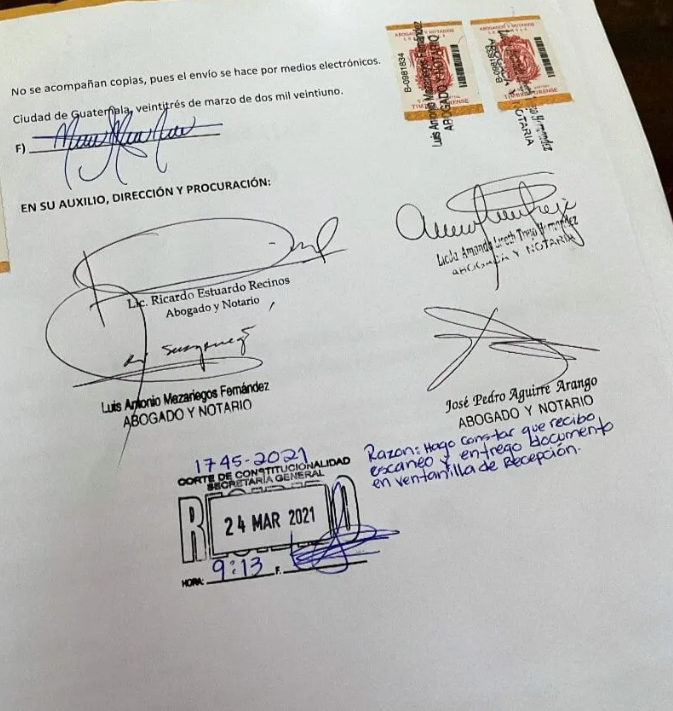 No se acompañan copias, pues el envío se hace por medios electrónicos.
Ciudad de Guatemala, veintitrés de marzo de dos mil veintiuno.
F)
EN SU AUXILIO, DIRECCIÓN Y PROCURACIÓN:
ABOGADOS Y NOTARIOS
B-0981834
TIMBRE FORENSE
Luis Antonio Mazariegos Fernández
ABOGADO Y NOTARIO
NOTARIA
Lic. Ricardo Estuardo Recinos
Abogado y Notario
Licda. Amanda Lizeth Trejo Hernández
ABOGADA Y NOTARIA
Luis Antonio Mazariegos Fernández
ABOGADO Y NOTARIO
José Pedro Aguirre Arango
ABOGADO Y NOTARIO
1745-2021
CORTE DE CONSTITUCIONALIDAD
SECRETARÍA GENERAL
24 MAR 2021
HORA: 9:13 F.
Razon: Hago constar que recibo,
escaneo y entrego documento
en ventanilla de Recepción.